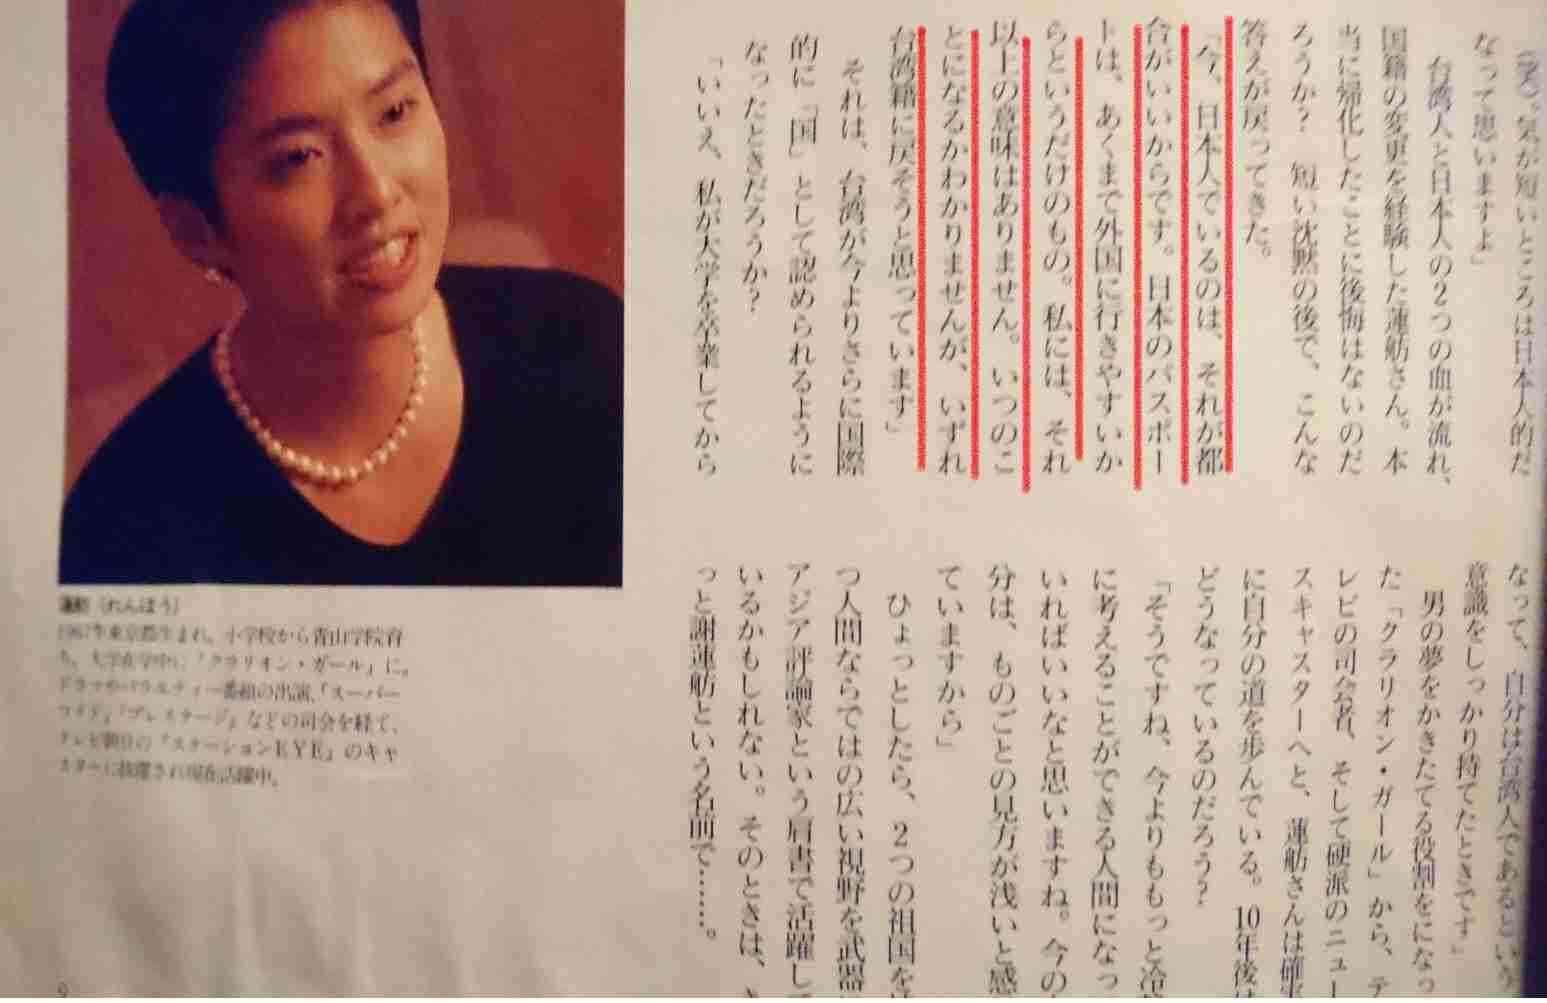 （笑）。気が短いところは日本人的だ
なって思いますよ」
台湾人と日本人の2つの血が流れ、
国籍の変更を経験した蓮舫さん。本
当に帰化したことに後悔はないのだ
ろうか？　短い沈黙の後で、こんな
答えが戻ってきた。
「今、日本人でいるのは、それが都
合がいいからです。日本のパスポー
トは、あくまで外国に行きやすいか
らというだけのもの。私には、それ
以上の意味はありません。いつのこ
とになるかわかりませんが、いずれ
台湾籍に戻そうと思っています」
それは、台湾が今よりさらに国際
的に「国」として認められるように
なったときだろうか？
「いいえ、私が大学を卒業してから
なって、自分は台湾人であるという
意識をしっかり持てたときです」
男の夢をかきたてる役割をになっ
た「クラリオン・ガール」から、テ
レビの司会者、そして硬派のニュー
スキャスターへと、蓮舫さんは確実
に自分の道を歩んでいる。10年後は
どうなっているのだろう？
「そうですね、今よりももっと冷静
に考えることができる人間になっ
いればいいなと思いますね。今の
分は、ものごとの見方が浅いと感
ていますから」
ひょっとしたら、2つの祖国を
つ人間ならではの広い視野を武器
アジア評論家という肩書で活躍し
いるかもしれない。そのときは、き
っと謝蓮舫という名前で……。
蓮舫（れんほう）
1967年東京都生まれ。小学校から青山学院育
ち。大学在学中に「クラリオン・ガール」に。
ドラマやバラエティー番組の出演、「スーパー
ワイド」「プレステージ」などの司会を経て、
テレビ朝日の「ステーションEYE」のキャ
スターに抜擢され現在活躍中。
9